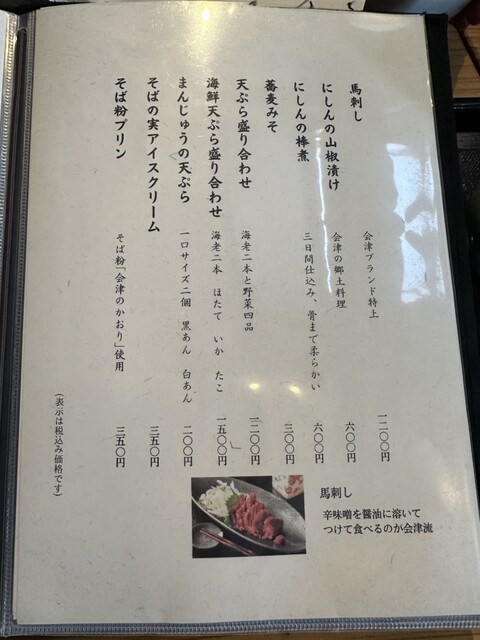 馬刺し 会津ブランド特上 一二〇〇円
にしんの山椒漬け 会津の郷土料理 六〇〇円
にしんの棒煮 三日間仕込み、骨まで柔らかい 六〇〇円
蕎麦みそ 三〇〇円
天ぷら盛り合わせ 海老二本と野菜四品 一二〇〇円
海鮮天ぷら盛り合わせ 海老二本 ほたて いか たこ 一五〇〇円
まんじゅうの天ぷら 一口サイズ二個 黒あん 白あん 二〇〇円
そばの実アイスクリーム 三五〇円
そば粉プリン そば粉「会津のかおり」使用 三五〇円
(表示は税込み価格です)
馬刺し
辛味噌を醤油に溶いて
つけて食べるのが会津流